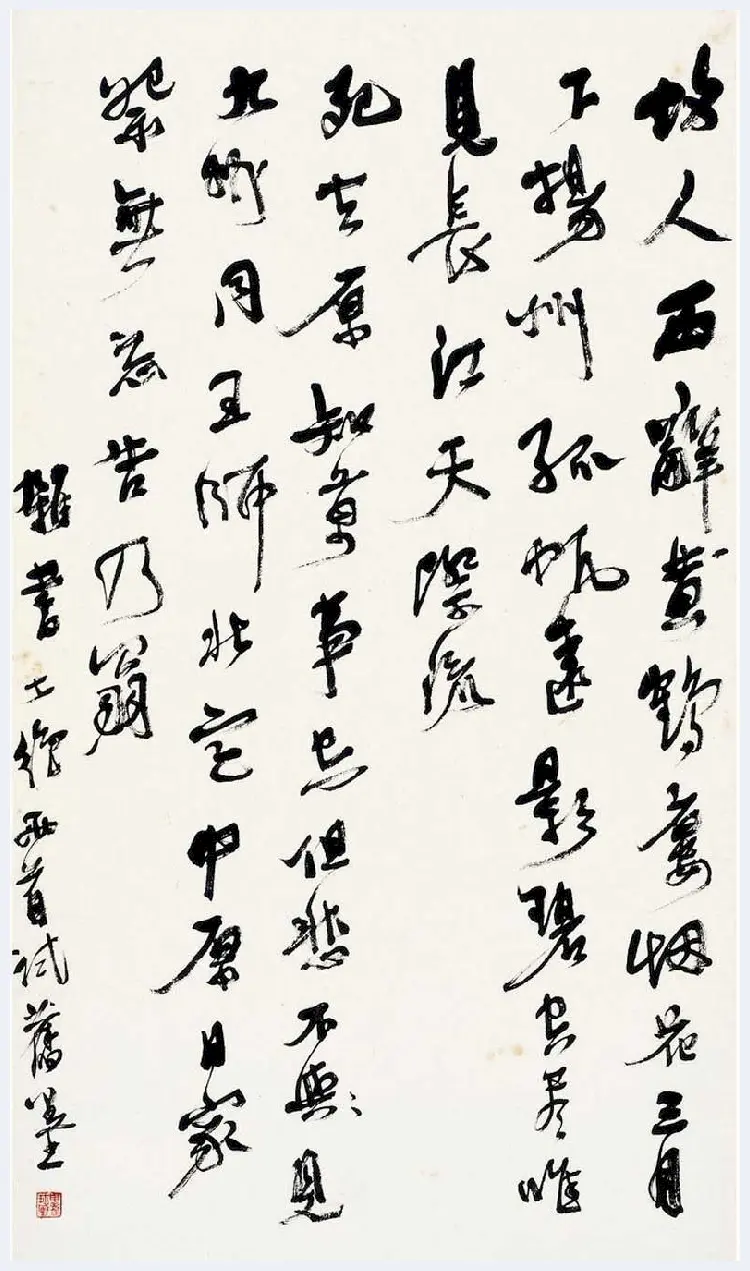 故人西辭黃鶴樓烟花三月
下揚州孤帆遠影碧空尽唯
見長江天際流
死去原知萬事空但悲不與見
九州同王師北定中原日家
祭無忘告乃翁
雜書七絕兩首試舊墨